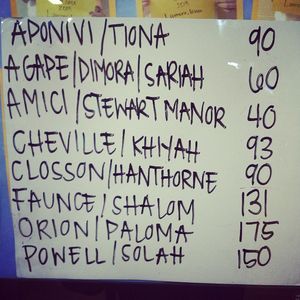 APONIVI/TIONA 90
AGAPE/DIMORA/SARIAH 60
AMICI/STEWART MANOR 40
CHEVILLE/KHIYAH 93
CLOSSON/HANTHORNE 90
FAUNCE/SHALOM 131
ORION/PALOMA 175
POWELL/SOLAH 150